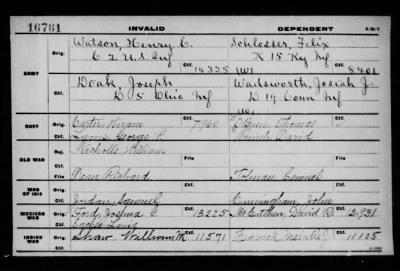 16761 INVALID DEPENDENT
Watson, Henry C. Schlosser, Felix
Orig. C 2 U.S. Inf Orig. K 15 Ky Inf
Ctf. 14325 W1 Ctf. 8401
ARMY
Doak, Joseph Wadsworth, Josiah Jr
Orig. D 5 Ohio Inf Orig. D 19 Conn Inf
Ctf. Ctf.
NAVY Orig. Carter Hiram Ctf. 7960 Thomas
Ctf. George R. David
Rej. Nicholls William
OLD WAR File File
Dean Richard Tolman Samuel
WAR OF 1812 Ctf. Ctf.
Jordan Samuel Cunningham, John
MEXICAN WAR Ford Joshua Ctf. 13225 McCutchen, David R. Ctf. 12931
Louis
INDIAN WAR Orig. Shaw 11571 11125